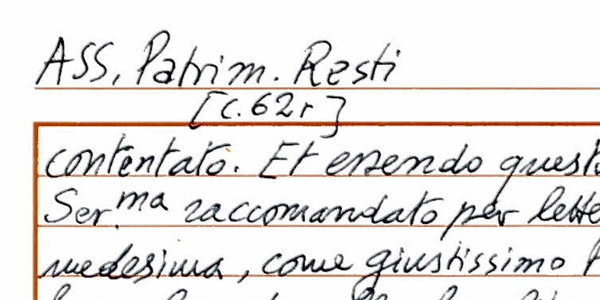 ASS, Patrim. Resti
[c. 62r]
contentato. Et essendo questo
Ser.ma raccomandato per lette
medesima, come giustissimo